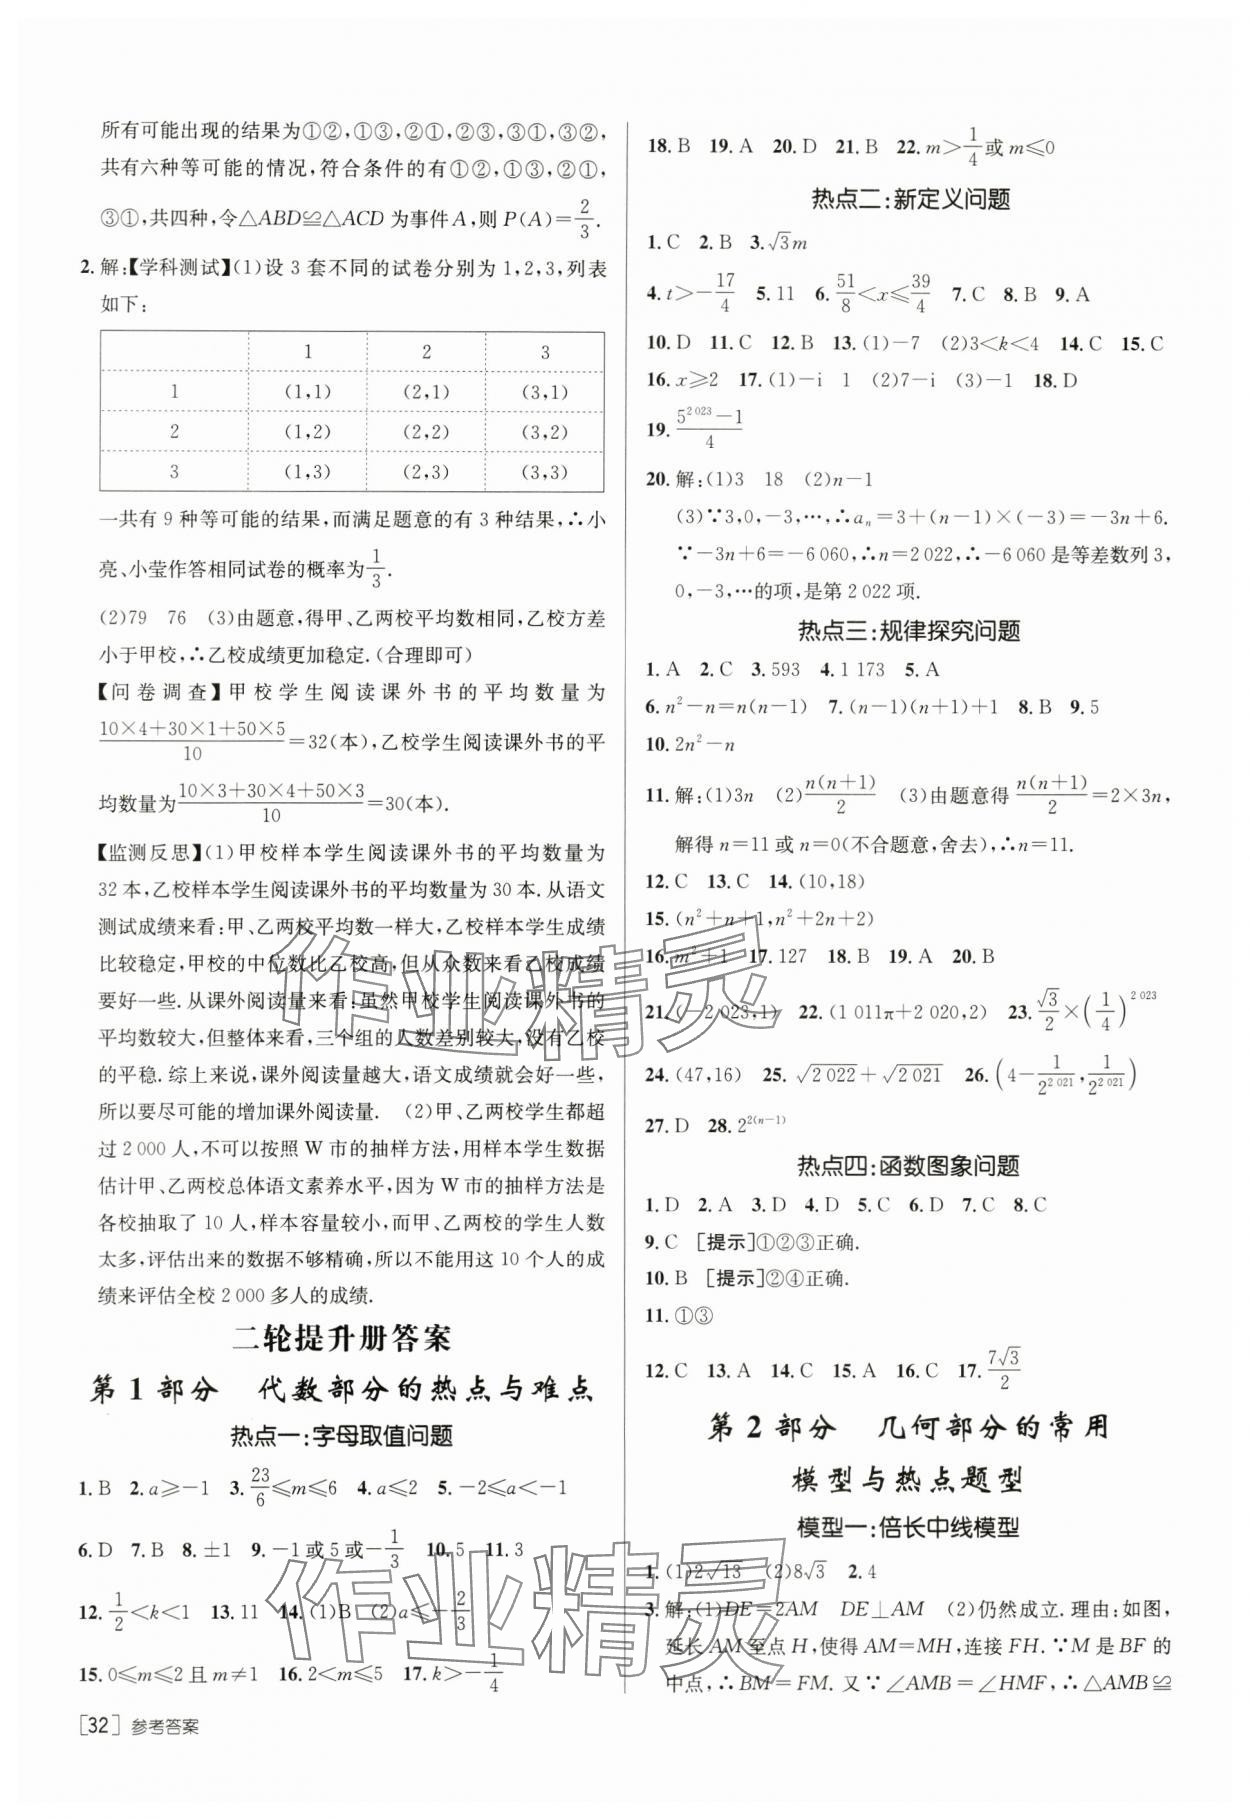 所有可能出现的结果为①②,①③,②①,②③,③①,③②,
共有六种等可能的情况,符合条件的有①②,①③,②①,
③①,共四种,令△ABD≌△ACD 为事件 A,则 P(A)=2/3.
2. 解:【学科测试】(1)设 3 套不同的试卷分别为 1,2,3,列表
如下:
1 2 3
1 (1,1) (2,1) (3,1)
2 (1,2) (2,2) (3,2)
3 (1,3) (2,3) (3,3)
一共有 9 种等可能的结果,而满足题意的有 3 种结果,∴小
亮、小莹作答相同试卷的概率为1/3.
(2)79 76 (3)由题意,得甲、乙两校平均数相同,乙校方差
小于甲校,∴乙校成绩更加稳定.(合理即可)
【问卷调查】甲校学生阅读课外书的平均数量为
(10×4+30×1+50×5)/10=32(本),乙校学生阅读课外书的平
均数量为(10×3+30×4+50×3)/10=30(本).
【监测反思】(1)甲校样本学生阅读课外书的平均数量为
32 本,乙校样本学生阅读课外书的平均数量为 30 本.从语文
测试成绩来看:甲、乙两校平均数一样大,乙校样本学生成绩
比较稳定,甲校的中位数比乙校高,但从众数来看乙校成绩
要好一些.从课外阅读量来看:虽然甲校学生阅读课外书的
平均数较大,但整体来看,三个组的人数差别较大,没有乙校
的平稳.综上来说,课外阅读量越大,语文成绩就会好一些,
所以要尽可能的增加课外阅读量. (2)甲、乙两校学生都超
过 2 000 人,不可以按照 W 市的抽样方法,用样本学生数据
估计甲、乙两校总体语文素养水平,因为 W 市的抽样方法是
各校抽取了 10 人,样本容量较小,而甲、乙两校的学生人数
太多,评估出来的数据不够精确,所以不能用这 10 个人的成
绩来评估全校 2 000 多人的成绩.
二轮提升册答案
第 1 部分 代数部分的热点与难点
热点一:字母取值问题
1. B 2. a≥-1 3. 23/6≤m≤6 4. a≤2 5. -2≤a<-1
6. D 7. B 8. ±1 9. -1 或 5 或-1/3 10. 5 11. 3
12. 1/2<k<1 13. 11 14. (1)B (2)a≤-2/3
15. 0≤m≤2 且 m≠1 16. 2<m≤5 17. k>-1/4
[32] 参考答案
18. B 19. A 20. D 21. B 22. m>1/4 或 m≤0
热点二:新定义问题
1. C 2. B 3. √3m
4. t>-17/4 5. 11 6. 51/8<x≤39/4 7. C 8. B 9. A
10. D 11. C 12. B 13. (1)-7 (2)3<k<4 14. C 15. C
16. x≥2 17. (1)-i 1 (2)7-i (3)-1 18. D
19. (5^{2 023}-1)/4
20. 解:(1)3 18 (2)n-1
(3)∵3,0,-3,…,∴aₙ=3+(n-1)×(-3)=-3n+6.
∵-3n+6=-6 060,∴n=2 022,∴-6 060 是等差数列 3,
0,-3,…的项,是第 2 022 项.
热点三:规律探究问题
1. A 2. C 3. 593 4. 1 173 5. A
6. n²-n=n(n-1) 7. (n-1)(n+1)+1 8. B 9. 5
10. 2n²-n
11. 解:(1)3n (2)n(n+1)/2 (3)由题意得 n(n+1)/2=2×3n,
解得 n=11 或 n=0(不合题意,舍去),∴n=11.
12. C 13. C 14. (10,18)
15. (n²+n+1,n²+2n+2)
16. m²+1 17. 127 18. B 19. A 20. B
21. (-2 023,1) 22. (1 011π+2 020,2) 23. √3/2×(1/4)^{2 023}
24. (47,16) 25. √2 022+√2 021 26. (4-1/2^{2 021},1/2^{2 021})
27. D 28. 2^{2(n-1)}
热点四:函数图象问题
1. D 2. A 3. D 4. D 5. C 6. D 7. C 8. C
9. C [提示]①②③正确.
10. B [提示]②④正确.
11. ①③
12. C 13. A 14. C 15. A 16. C 17. 7√3/2
第 2 部分 几何部分的常用
模型与热点题型
模型一:倍长中线模型
1. (1)2√13 (2)8√3 2. 4
3. 解:(1)DE=2AM DE⊥AM (2)仍然成立.理由:如图,
延长 AM 至点 H,使得 AM=MH,连接 FH.∵M 是 BF 的
中点,∴BM=FM.又∵∠AMB=∠HMF,∴△AMB≌
作业精灵
作业精灵